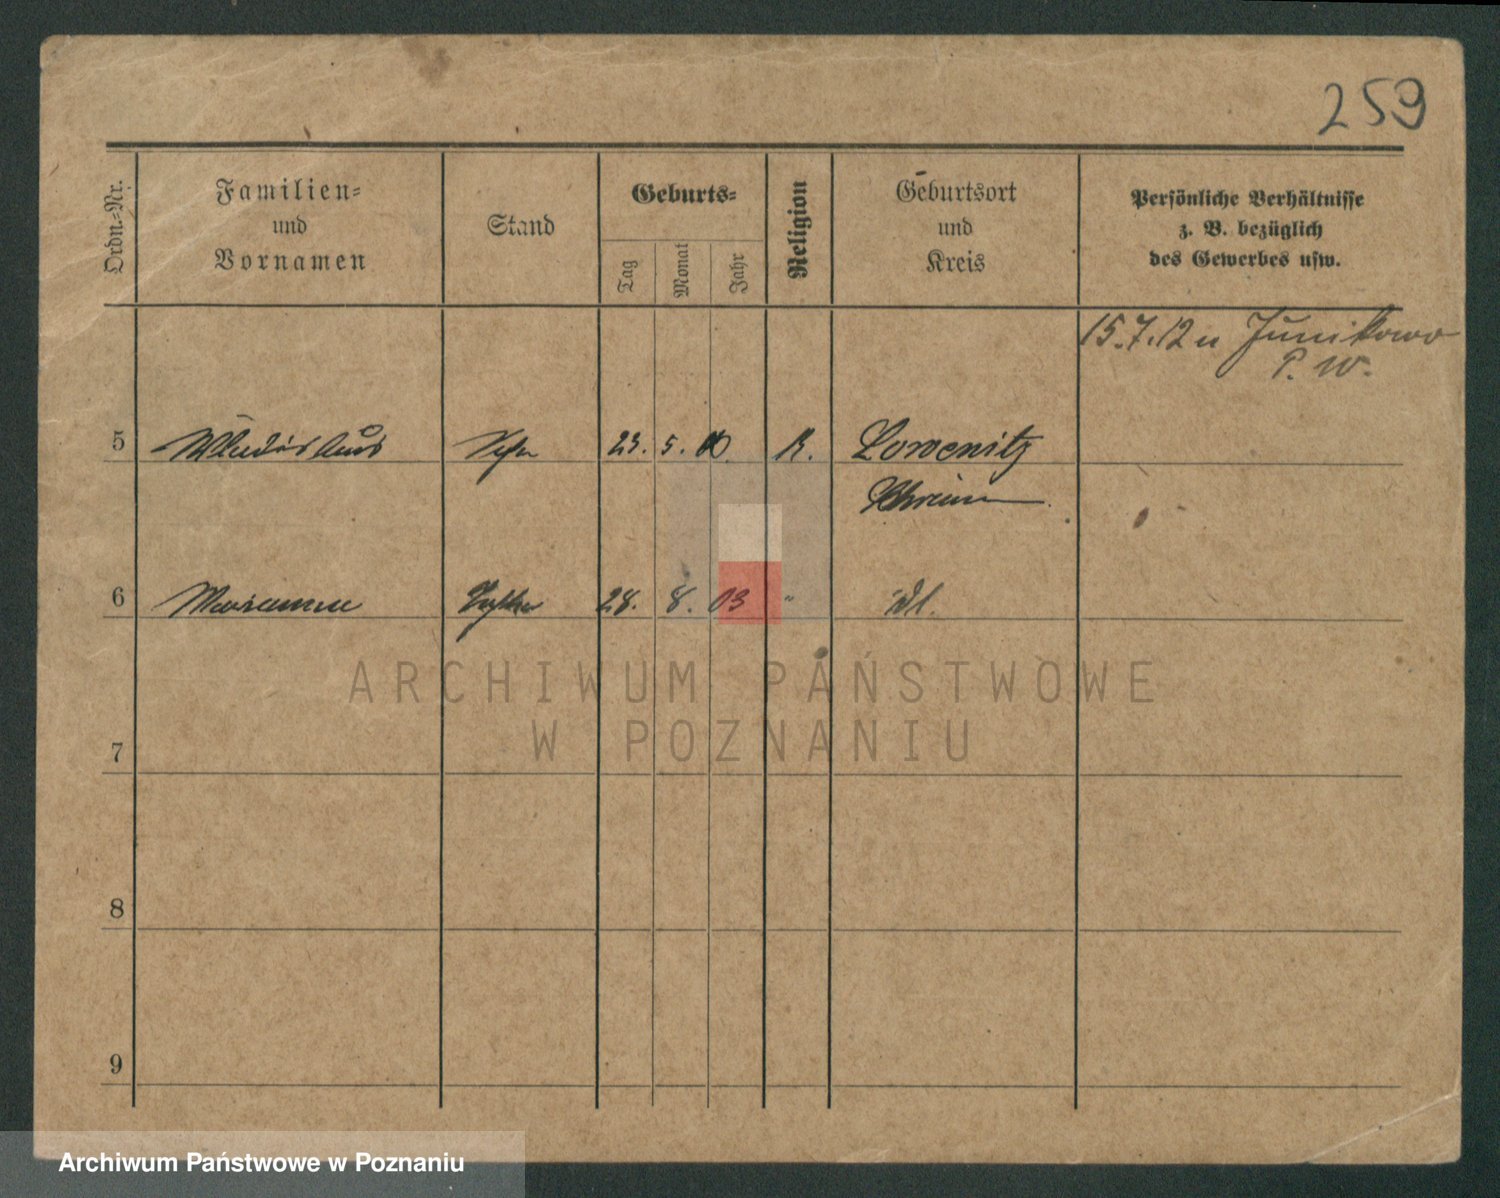 259
Ordn.-Nr.
Familien-
und
Vornamen
Stand
Geburts-
Tag
Monat
Jahr
Religion
Geburtsort
und
Kreis
Persönliche Verhältnisse
z. B. bezüglich
des Gewerbes usw.
15.7.12 n Junikowo
P. W.
5 Wladislaus 23. 5. K. Lowenitz
Schrimm
6 Marianna 28. 8. 03 " dt.
ARCHIWUM PAŃSTWOWE
W POZNANIU
7
8
9
Archiwum Państwowe w Poznaniu